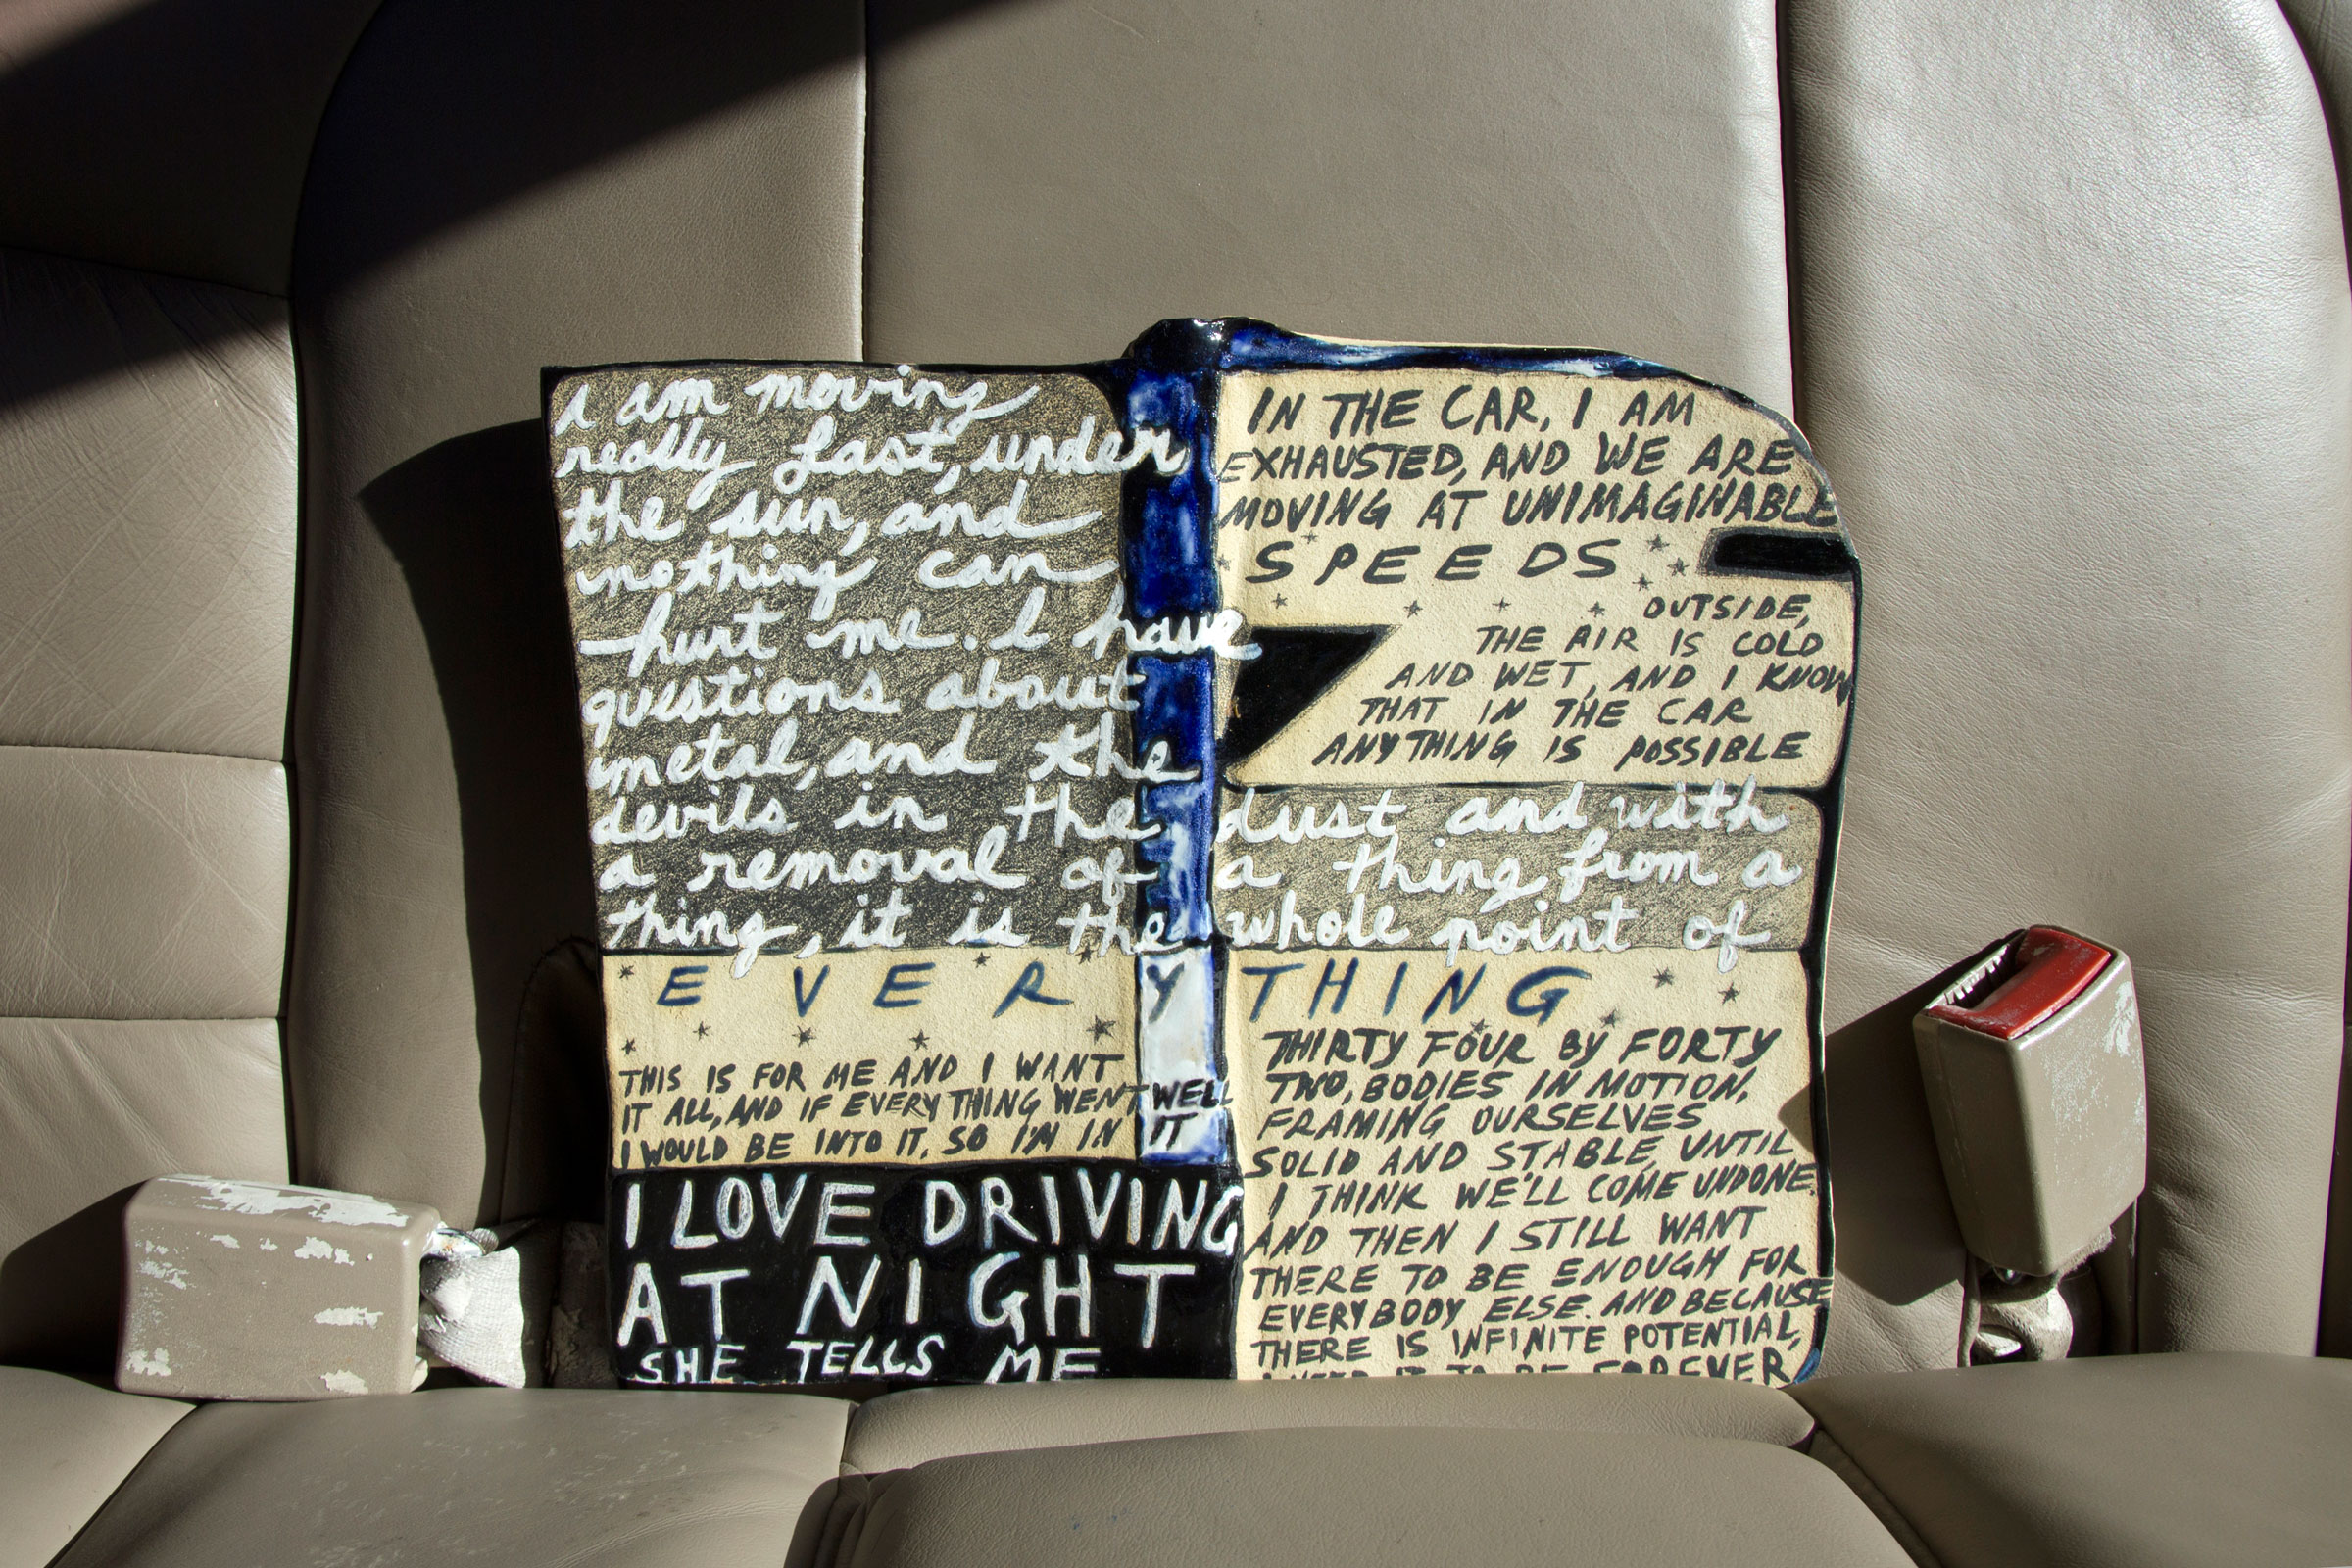 I am moving
really fast, under
the sun, and
nothing can
hurt me. I have
questions about
metal, and the
devils in the dust and with
a removal of a thing from a
thing, it is the whole point of
E V E R Y T H I N G
THIS IS FOR ME AND I WANT
IT ALL, AND IF EVERYTHING WENT WELL
I WOULD BE INTO IT, SO I'M IN IT
I LOVE DRIVING
AT NIGHT
SHE TELLS ME
IN THE CAR, I AM
EXHAUSTED, AND WE ARE
MOVING AT UNIMAGINABLE
S P E E D S
OUTSIDE,
THE AIR IS COLD
AND WET, AND I KNOW
THAT IN THE CAR
ANYTHING IS POSSIBLE
THIRTY FOUR BY FORTY
TWO, BODIES IN MOTION,
FRAMING OURSELVES
SOLID AND STABLE, UNTIL
I THINK WE'LL COME UNDONE.
AND THEN I STILL WANT
THERE TO BE ENOUGH FOR
EVERYBODY ELSE. AND BECAUSE
THERE IS INFINITE POTENTIAL,
I NEED IT TO BE FOREVER,